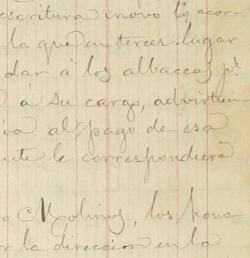 escritura
la que en tercer lugar
dar à los albaceas
à su cargo, advirtien
al pago de esa
le corresponderá
Molins, los hono
la direccion en la